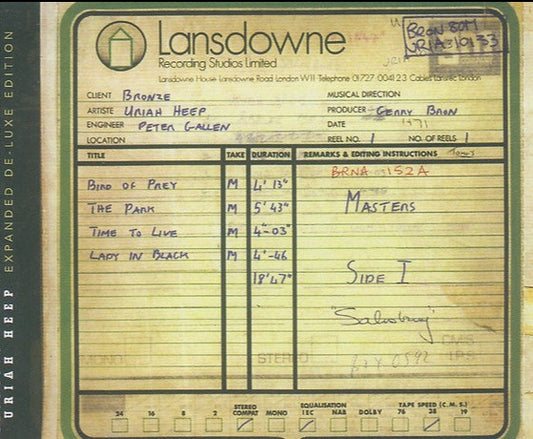 URIAH HEEP EXPANDED DE-LUXE EDITION
Lansdowne
Recording Studios Limited
Lansdowne House Lansdowne Road London W11 Telephone 01 727 0041 2 3 Cables Lansrec London
BRON 80M
URIA 19133
CLIENT BRONZE MUSICAL DIRECTION
ARTISTE URIAH HEEP PRODUCER GERRY BRON
ENGINEER PETER GALLEN DATE 1971
LOCATION REEL NO. 1 NO. OF REELS 1
TITLE TAKE DURATION REMARKS & EDITING INSTRUCTIONS
BRNA 152A
BIRD OF PREY M 4' 13"
THE PARK M 5' 43" MASTERS
TIME TO LIVE M 4'-03"
LADY IN BLACK M 4'-46
18'47" SIDE I
"Salisbury"
MONO STEREO CMS
IPS
24 16 8 2 STEREO COMPAT MONO EQUALISATION IEC NAB DOLBY TAPE SPEED (C.M.S.) 76 38 19